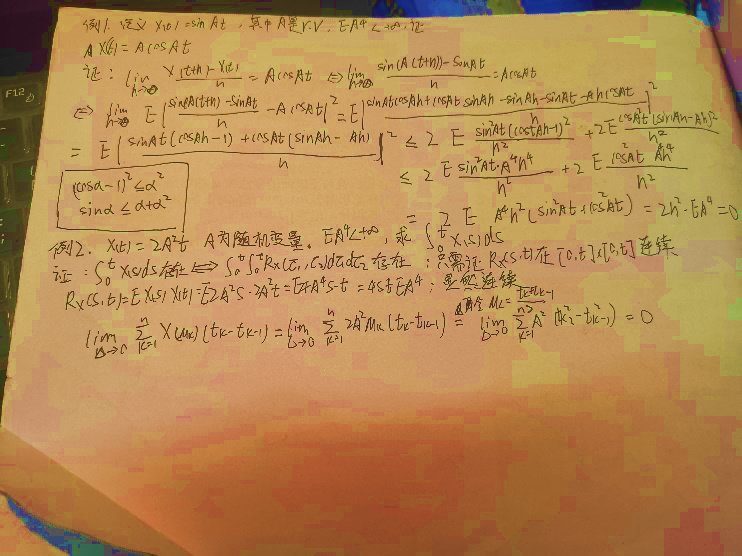 例1. 定义 X(t)=sin At, 其中A是r.V. EA⁴<+∞, 证
X(t)=AcosAt
证: lim_{h→0} (X(t+h)-X(t))/h = AcosAt ⇔ lim_{h→0} (sin(A(t+h))-SinAt)/h = AcosAt
⇔ lim_{h→0} E|(sin(A(t+h)-SinAt)/h - AcosAt|² = E|(sinAtcosAh+cosAt sinAh-sinAh-sinAt-AhcosAt)/h|²
= E|(sinAt(cosAh-1)+cosAt(sinAh-Ah))/h|² ≤ 2E (sin²At(cosAh-1)²)/h² + 2E (cos²At(sinAh-Ah)²)/h²
(cosα-1)²≤α²
sinα≤α+α²
≤ 2E (sin²At·A⁴h⁴)/h² + 2E (cos²At A⁴h⁴)/h²
= 2E A⁴h²(sin²At+cos²At) = 2h²·EA⁴=0
例2. X(t)=2A²t A为随机变量。EA⁴<+∞, 求∫₀ᵗX(s)ds
证: ∫₀ᵗX(s)ds存在⇔∫₀ᵗ∫₀ᵗRx(τ₁,τ₂)dτ₁dτ₂存在; 只需证 Rx(s,t)在[0,t]x[0,t]连续
Rx(s,t)=EX(s)X(t)=E2A²s·2A²t=E4A⁴s·t=4stEA⁴; 显然连续
lim_{Δ→0} Σ_{k=1}^{n} X(uk)(tk-tk-1)=lim_{Δ→0} Σ_{k=1}^{n} 2A²uk(tk-tk-1) = lim_{Δ→0} Σ_{k=1}^{n} A²(tk²-tk-1²)=0